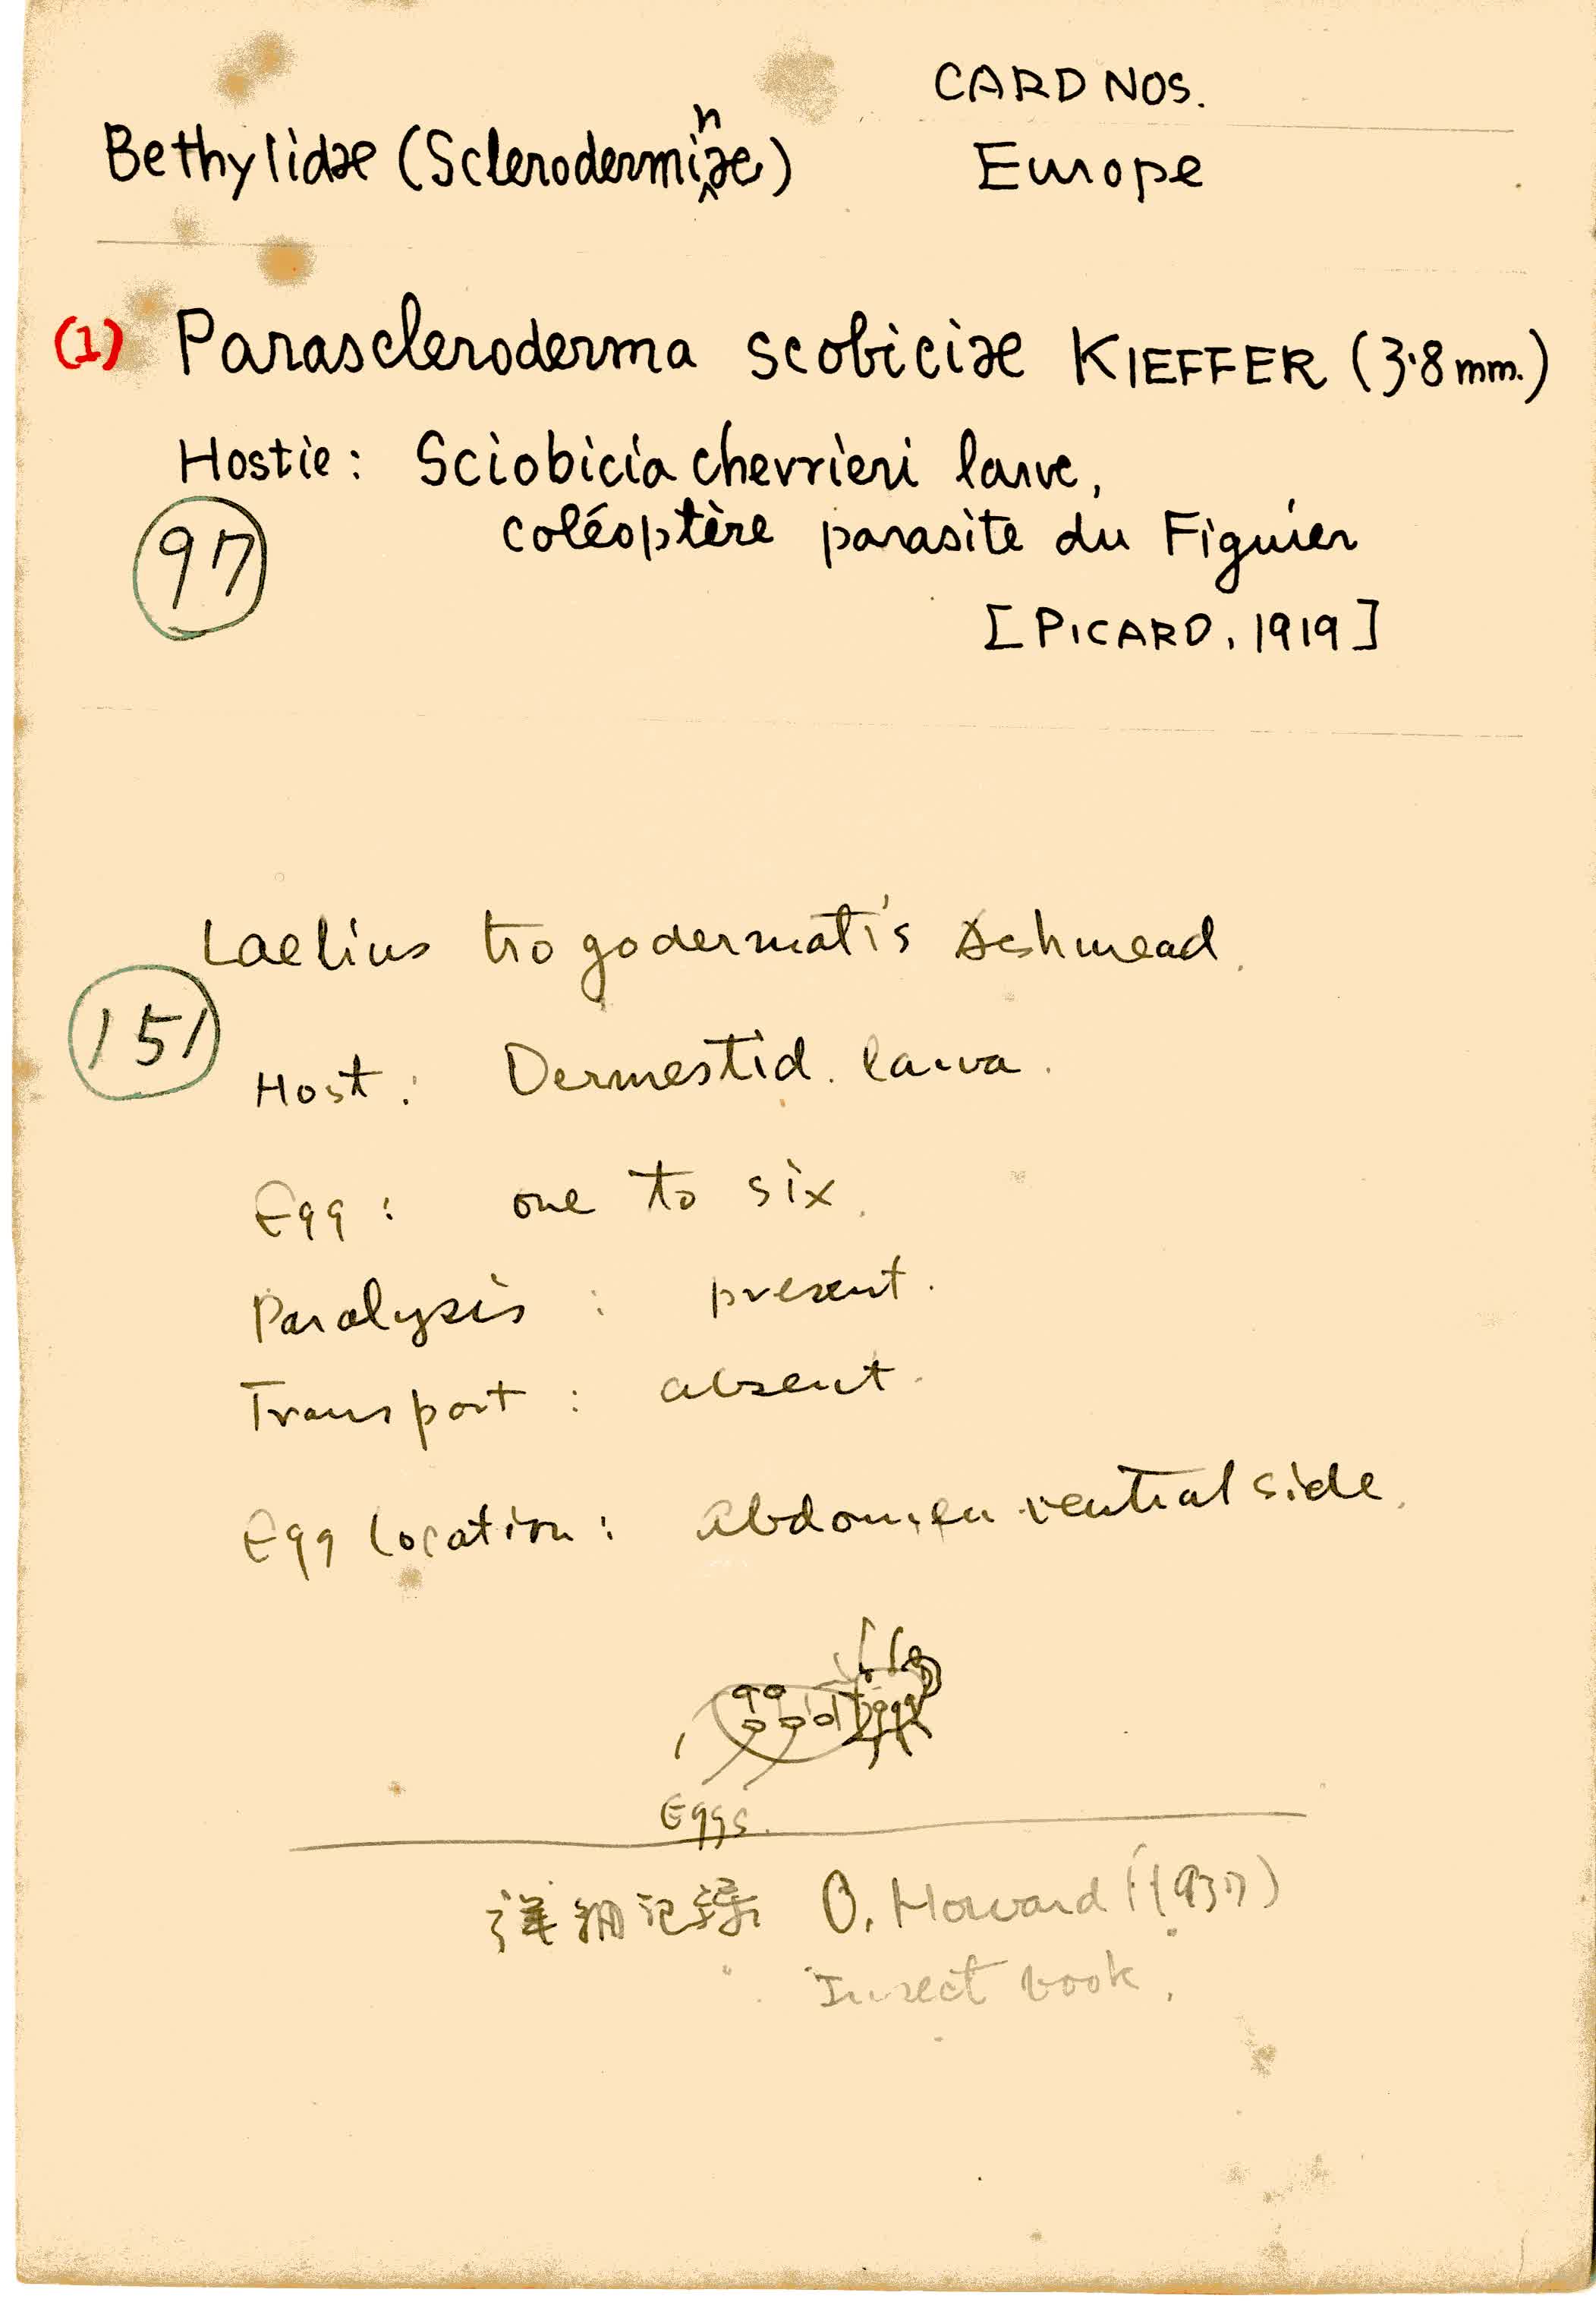 CARD NOS.
Bethylidæ (Scleroderminæ) Europe
(1) Parascleroderma scobiciæ KIEFFER (3.8 mm.)
Hostie : Sciobicia chevrieri larve,
97 coléoptère parasite du Figuier
[PICARD, 1919]
Laelius trogodermatis Ashmead.
151
Host : Dermestid. larva.
Egg : one to six.
Paralysis : present.
Transport : absent.
Egg location : Abdomen ventral side.
Eggs.
詳細記録 O. Howard (1937)
Insect book.